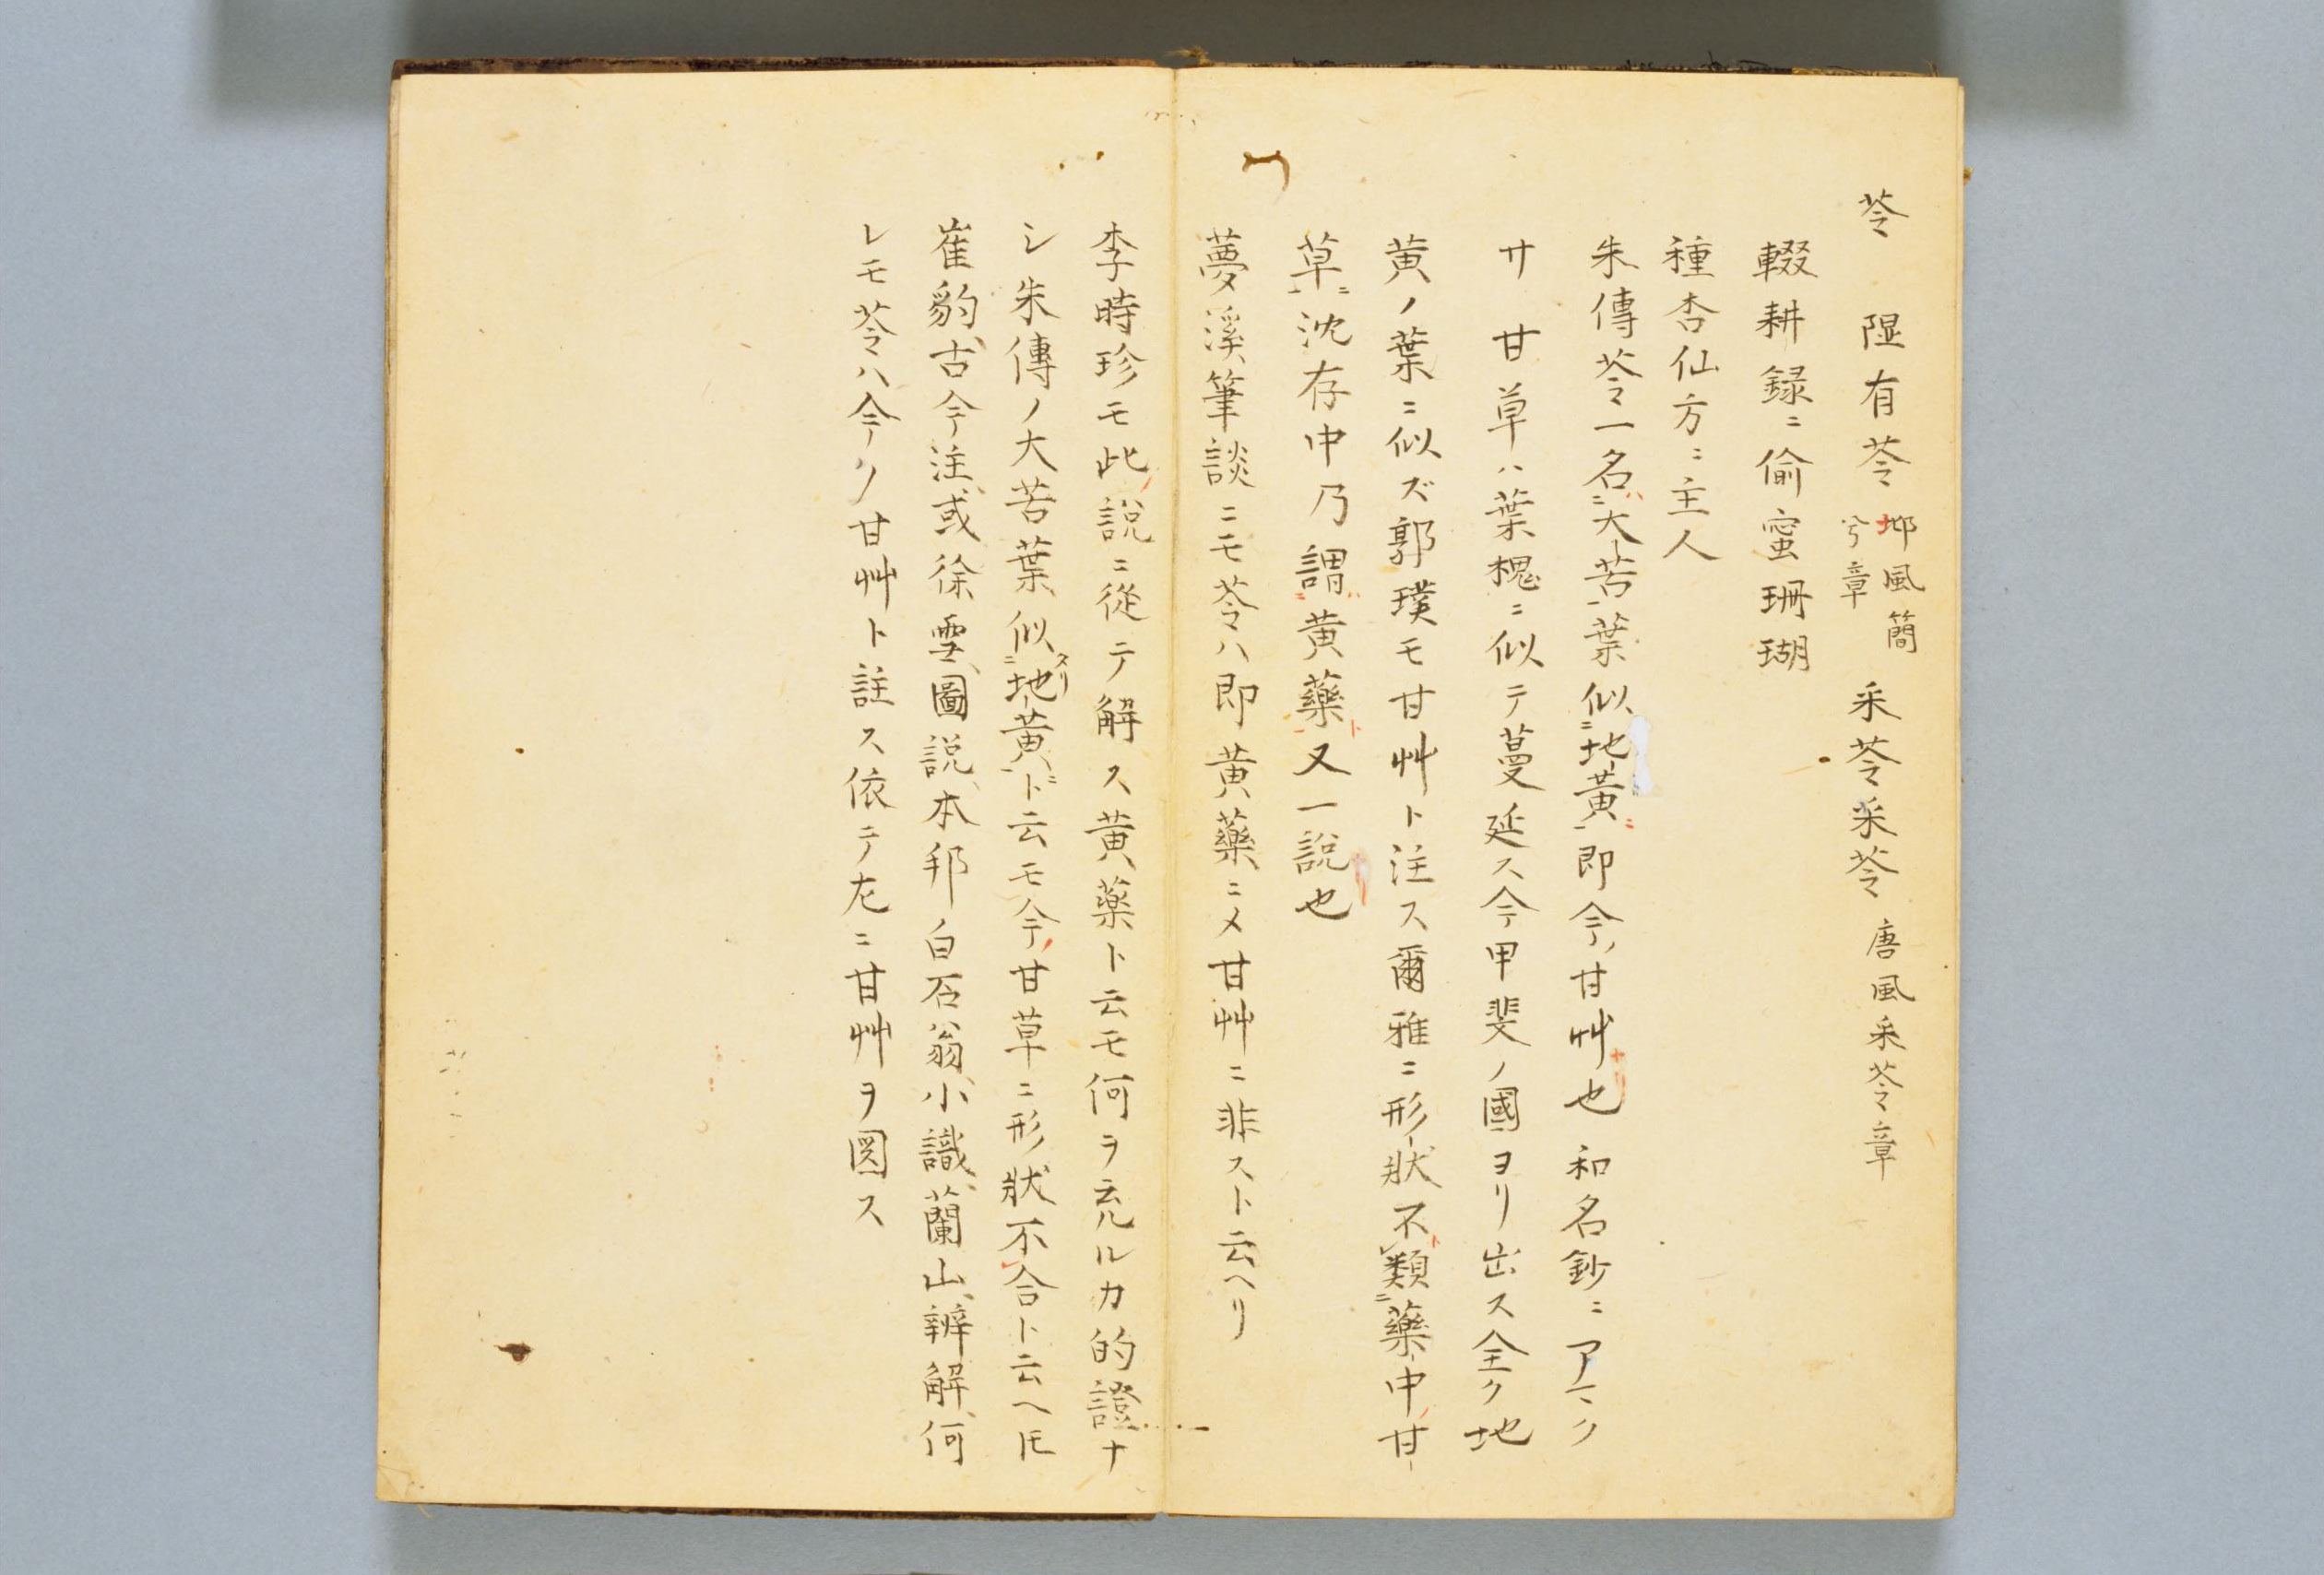 苓　隰有苓　邶風簡兮章　采苓采苓　唐風采苓章
輟耕録ニ偷蜜珊瑚
種杏仙方ニ主人
朱傳苓一名ハ大苦葉似ニ地黄ニ即今ノ甘艸也ナリ 和名鈔ニアマク
サ 甘草ハ葉槐ニ似テ蔓延ス今甲斐ノ國ヨリ出ス全ク地
黄ノ葉ニ似ズ郭璞モ甘艸ト注ス爾雅ニ形狀不類ニ藥中ノ甘
草ニ沈存中乃謂黄藥ト又一説也
夢溪筆談ニモ苓ハ即黄藥ニメ甘艸ニ非スト云ヘリ
李時珍モ此説ニ從テ解ス黄藥ト云モ何ヲ云ルカ的證ナ
シ朱傳ノ大苦葉似ニ地黄ニト云モ今ノ甘草ニ形狀不合ト云ヘ𪜈
崔豹古今注或徐雪圖説本邦白石翁小識蘭山辨解何
レモ苓ハ今ノ甘艸ト註ス依テ左ニ甘艸ヲ図ス